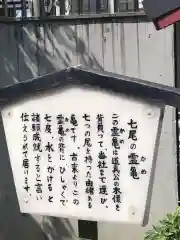 七尾の霊亀
この霊亀は道真公の木像を
背負って当社まで運び、
七つの尾を持った由緒ある
亀です。古来よりこの
霊亀の背にひしゃくで
七度、水をかけると
諸願成就すると言い
伝えられて居ります。